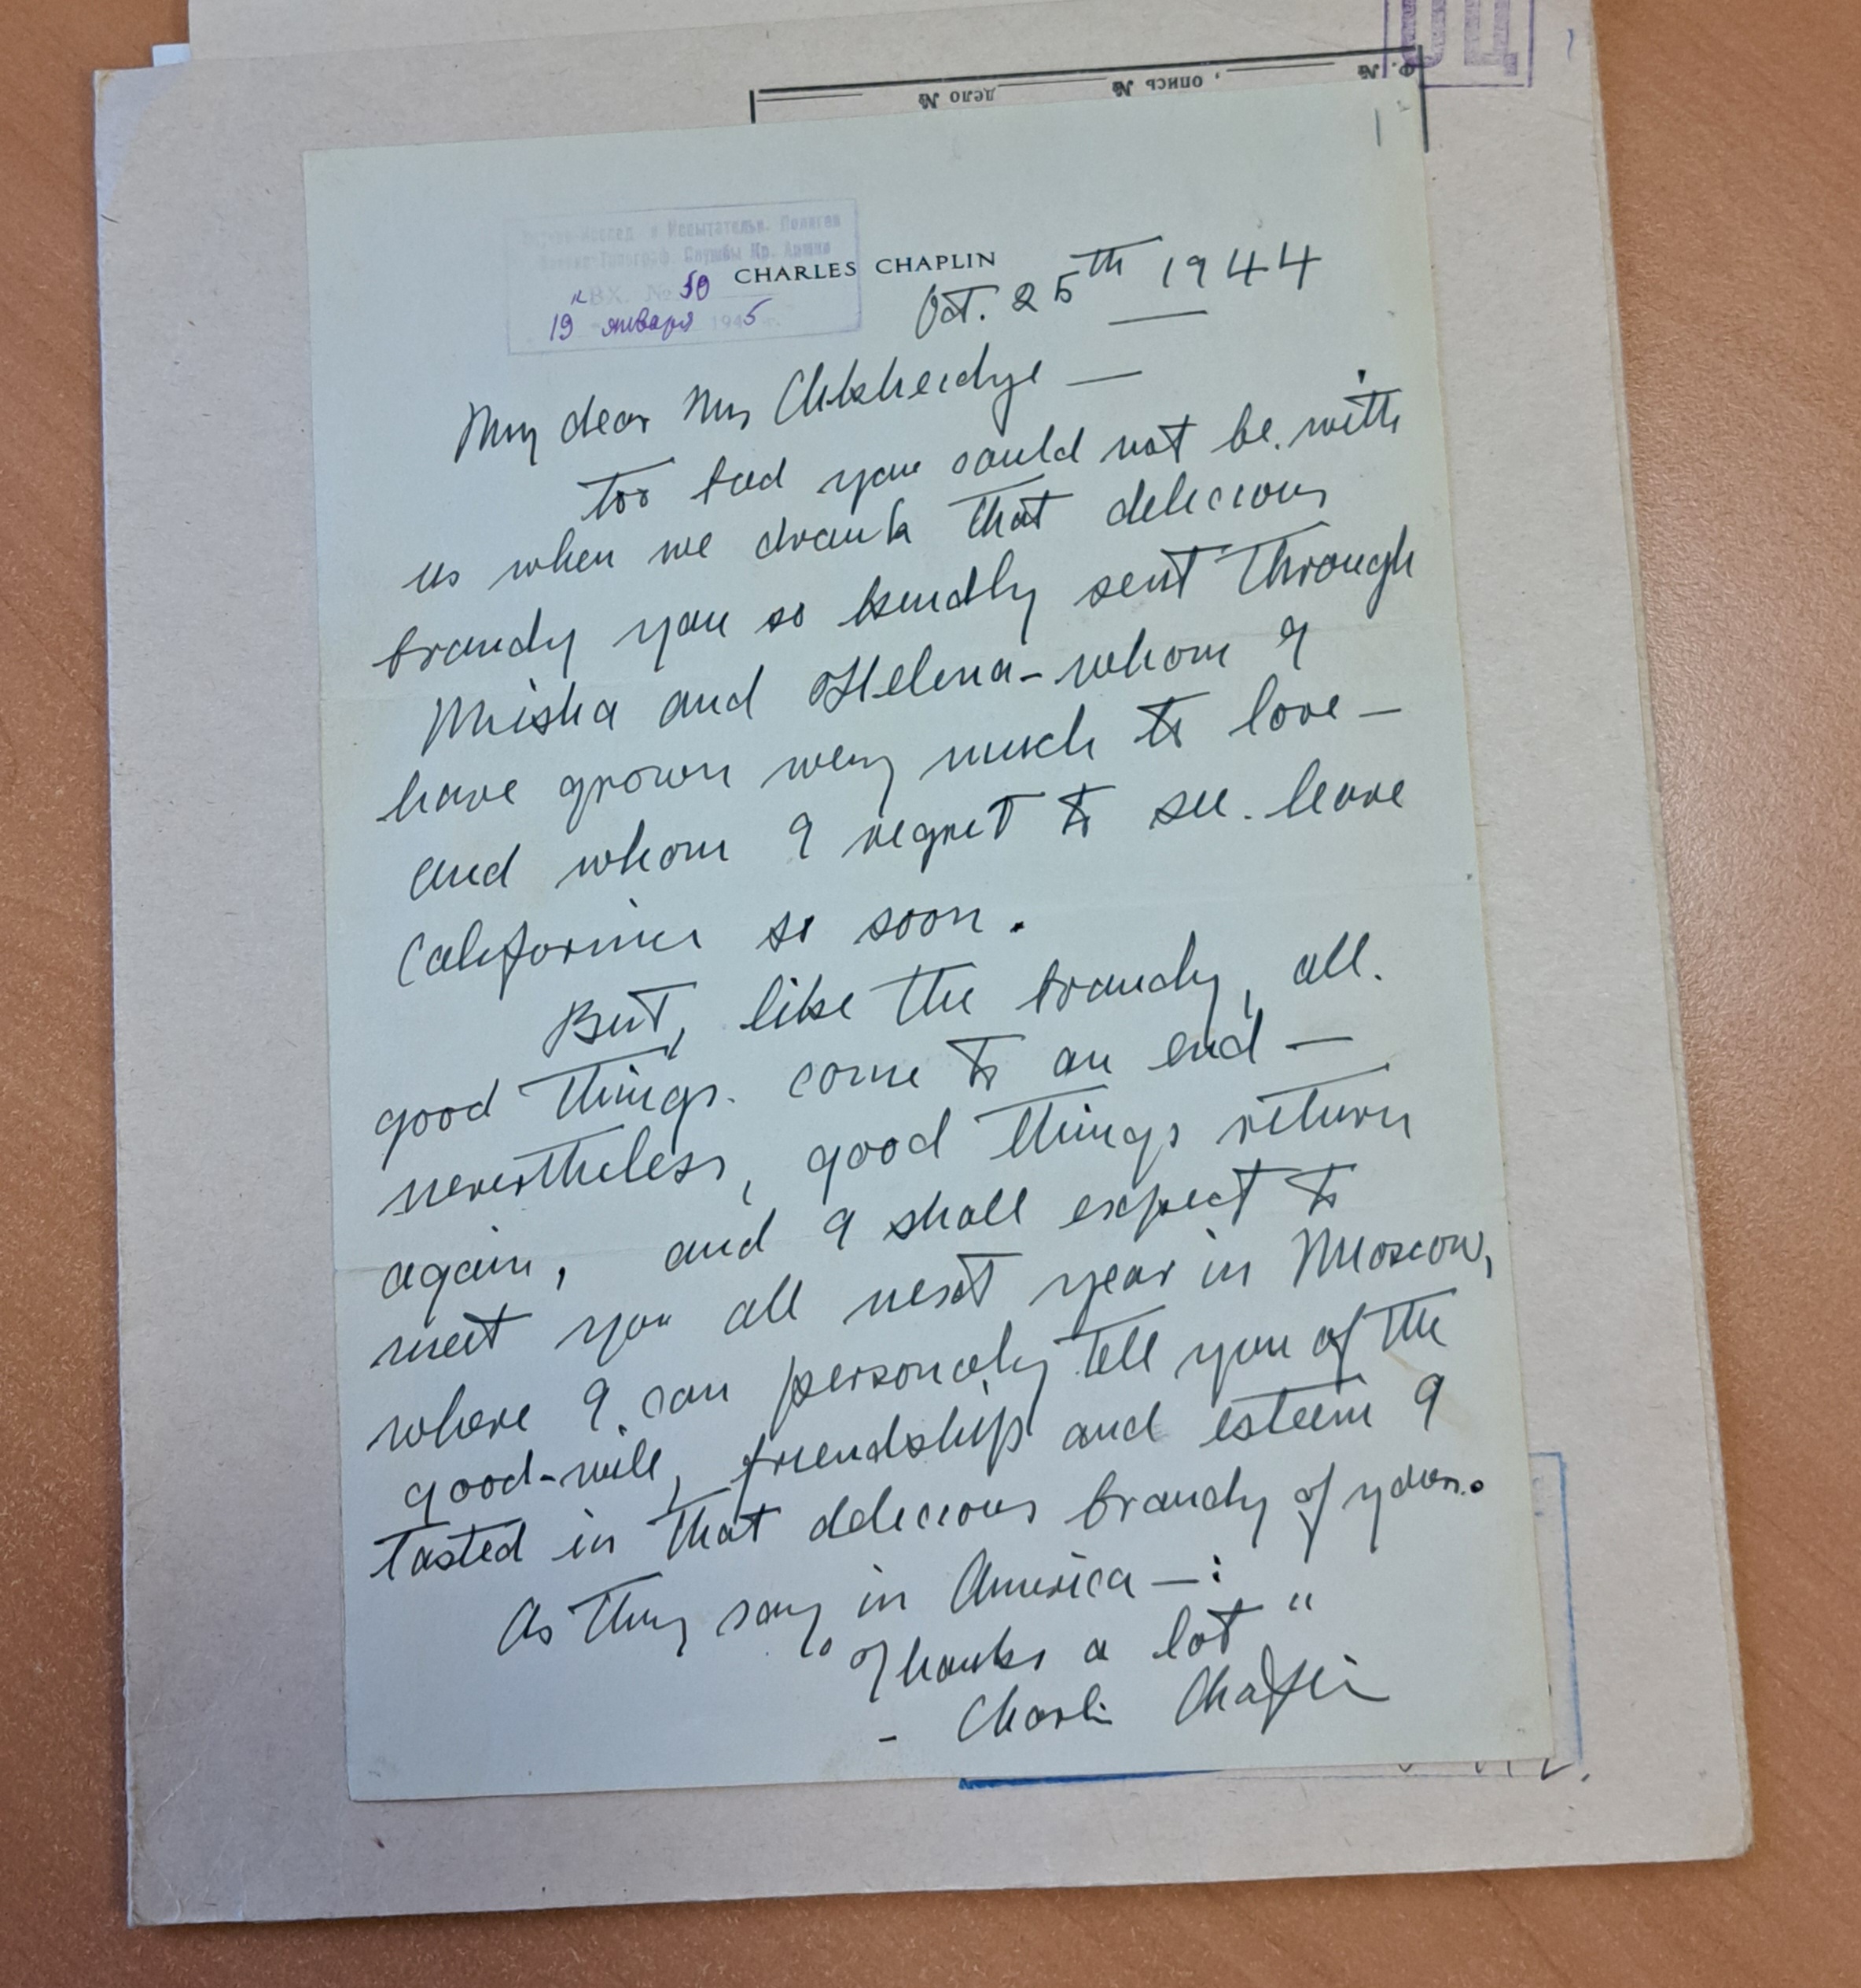 ОЦ
Ф. № , опись № дело №
1
Исслед. и Испытательн. Полигон
Службы Кр. Армии
CHARLES CHAPLIN
Вх. № 50
19 января 1945 г.
Oct. 25th 1944
My dear Mr Chkheidze —
Too bad you could not be with
us when we drank that delicious
brandy you so kindly sent through
Misha and Helena - whom I
have grown very much to love —
and whom I regret to see leave
California so soon.
But, like the brandy, all
good things come to an end —
nevertheless, good things return
again, and I shall expect to
meet you all next year in Moscow,
where I can personally tell you of the
good-will, friendship and esteem I
tasted in that delicious brandy of yours.
As they say in America —:
"Thanks a lot"
- Charlie Chaplin